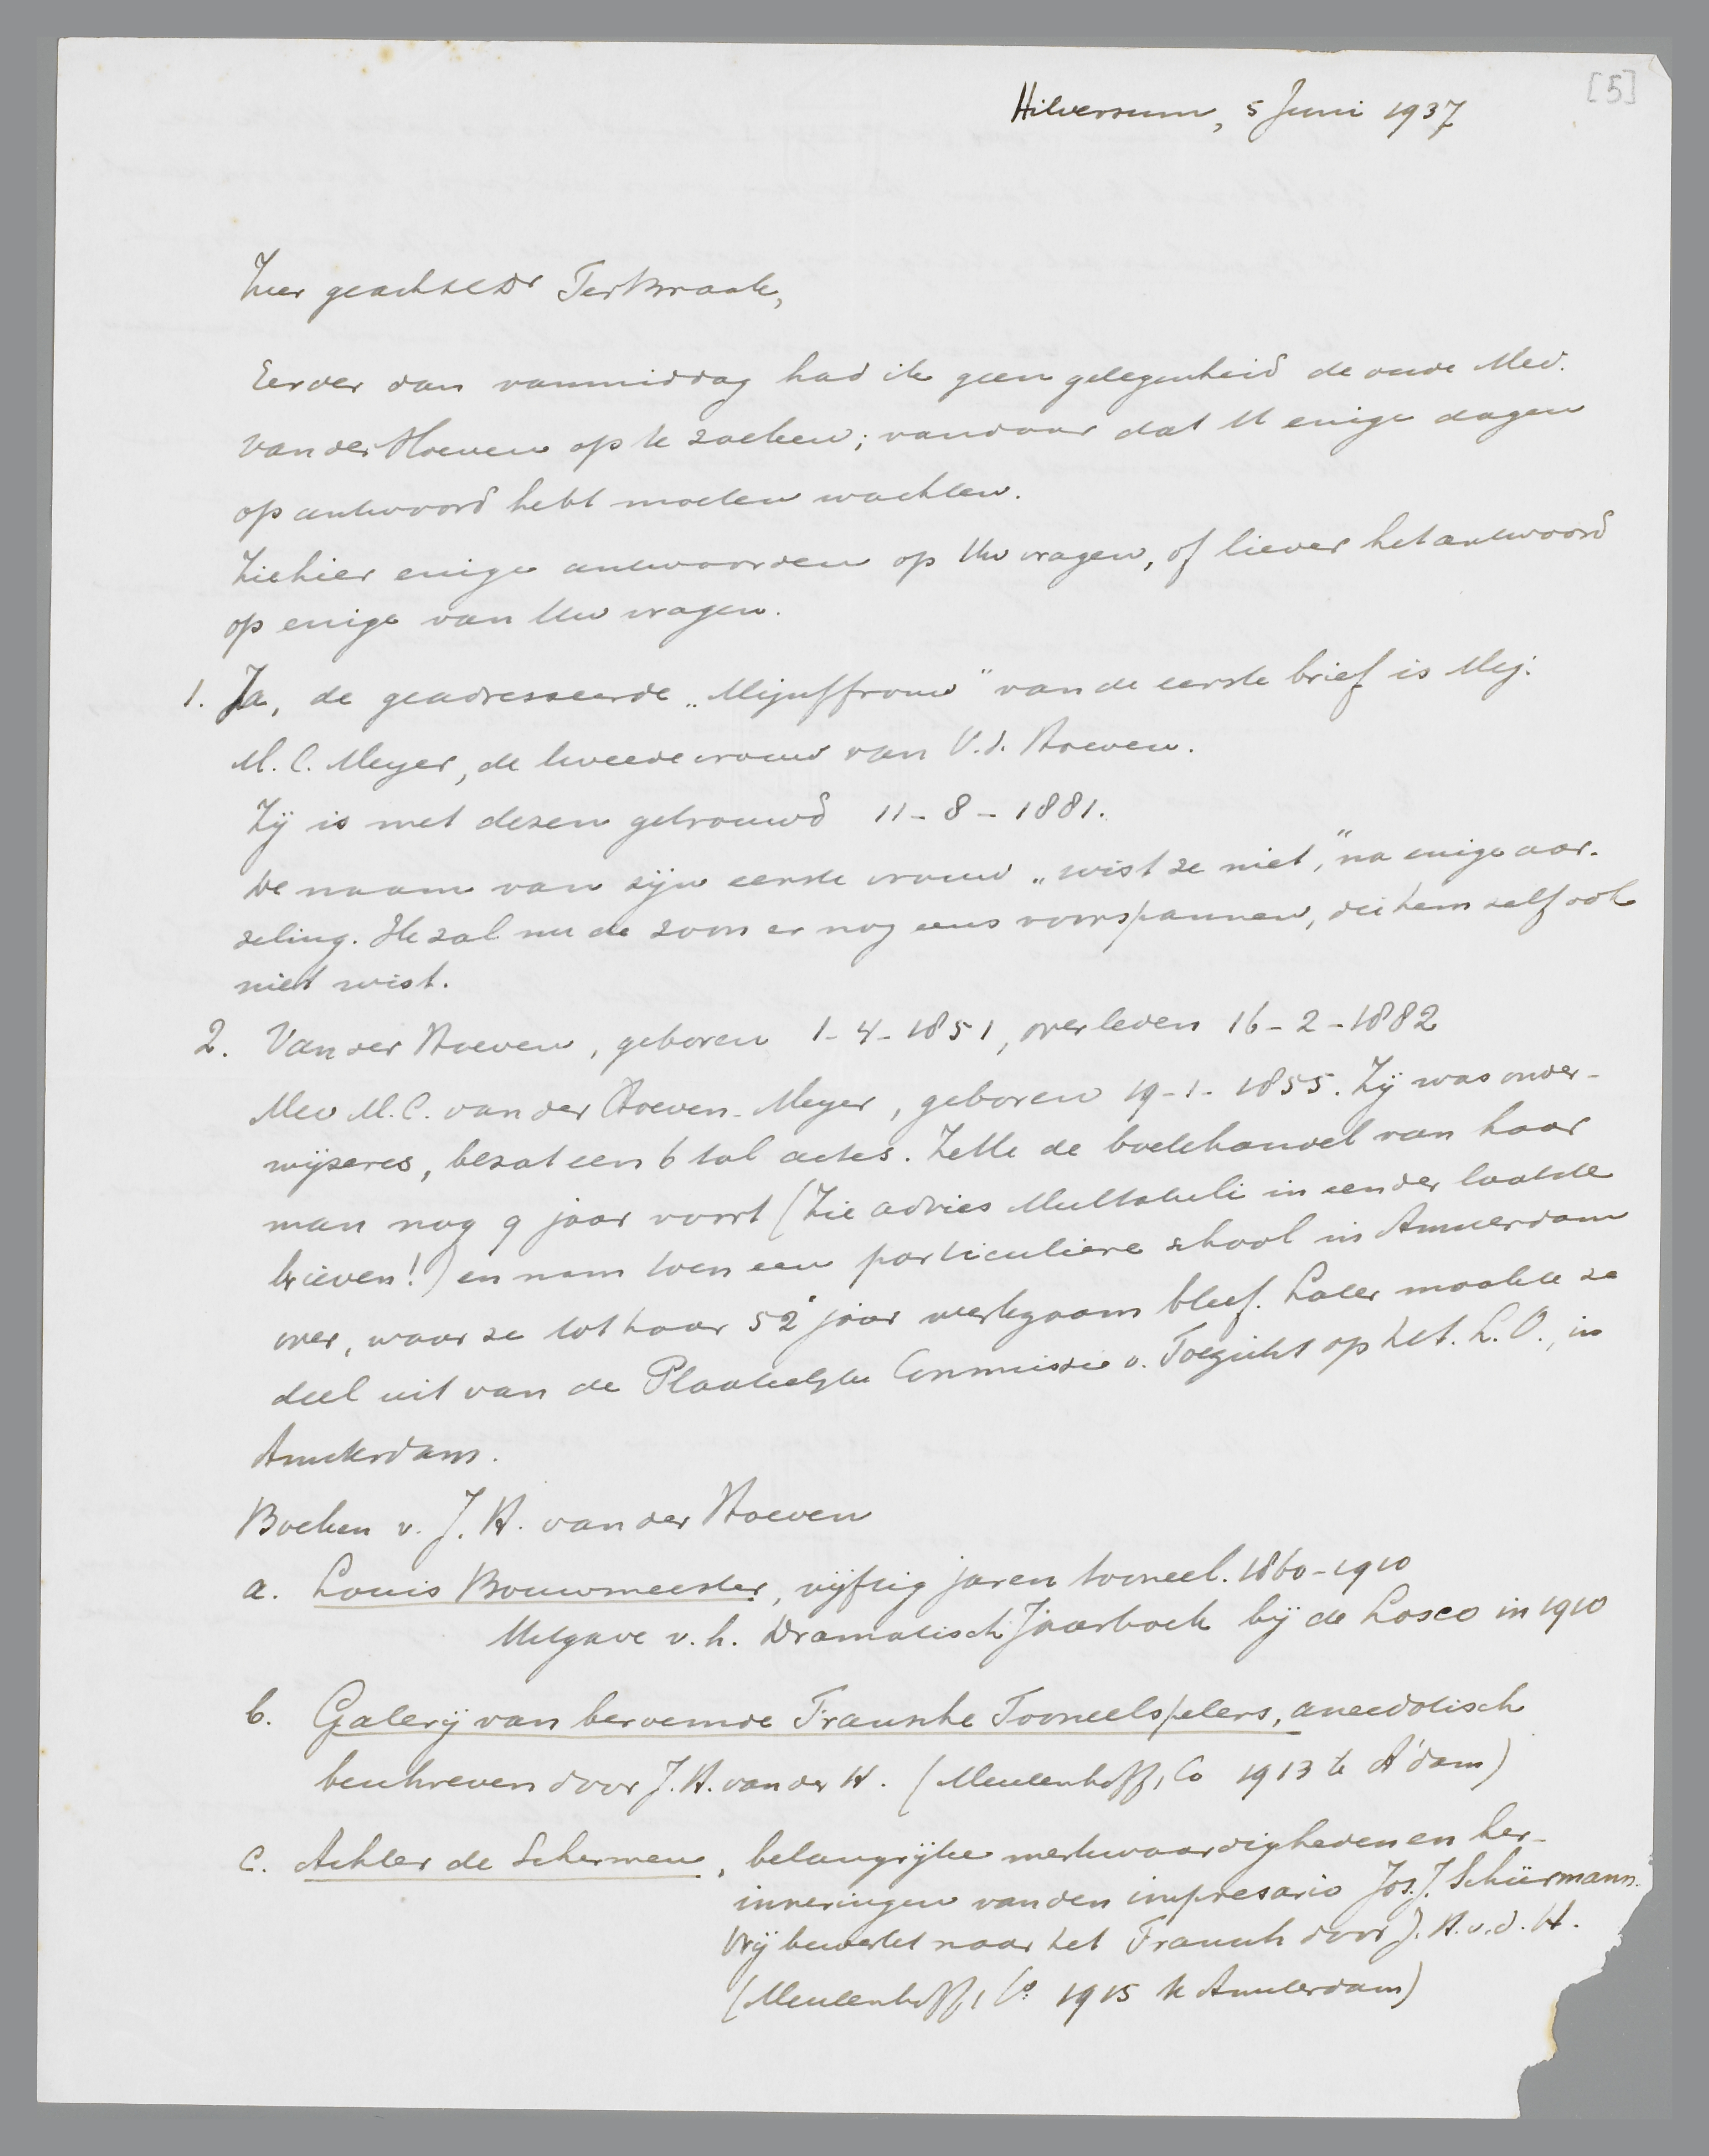 [5]
Hilversum, 5 Juni 1937
Zeer geachte Dr Ter Braak,
Eerder dan vanmiddag had ik geen gelegenheid de oude Mev.
van der Hoeven op te zoeken; vandaar dat U enige dagen
op antwoord hebt moeten wachten.
Ziehier enige antwoorden op Uw vragen, of liever het antwoord
op enige van Uw vragen.
1. Ja, de geadresseerde „Mijuffrouw” van de eerste brief is Mej.
M. C. Meyer, de tweede vrouw van V. d. Hoeven.
Zij is met dezen getrouwd 11-8-1881.
De naam van zijn eerste vrouw „wist ze niet,” na enige aar-
zeling. Ik zal nu de zoon er nog eens voorspannen, die hem zelf ook
niet wist.
2. Van der Hoeven, geboren 1-4-1851, overleden 16-2-1882
Mev M. C. van der Hoeven-Meyer, geboren 19-1-1855. Zij was onder-
wijzeres, bezat een 6 tal actes. Zette de boekhandel van haar
man nog 9 jaar voort (Zie advies Multatuli in een der laatste
brieven!) en nam toen een particuliere school in Amsterdam
over, waar ze tot haar 52e jaar werkzaam bleef. Later maakte ze
deel uit van de Plaatselijke Commissie v. Toezicht op het L. O., in
Amsterdam.
Boeken v. J. H. van der Hoeven
a. Louis Bouwmeester, vijftig jaren tooneel. 1860-1910
Uitgave v. h. Dramatisch Jaarboek bij de Losco in 1910
b. Galerij van beroemde Fransche Tooneelspelers, anecdotisch
beschreven door J. H. van der H. (Meulenhoff, Co 1913 te A'dam)
c. Achter de Schermen, belangrijke merkwaardigheden en her-
inneringen van den impresario Jos. J. Schürmann.
Vrij bewerkt naar het Fransch door J. H. v. d. H.
(Meulenhoff, Co 1915 te Amsterdam)